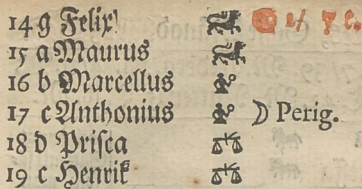 14 g Felix
15 a Maurus ♌
16 b Marcellus ♍
17 c Anthonius ♍ ☽ Perig.
18 d Priſca ♎
19 e Henrik ♎